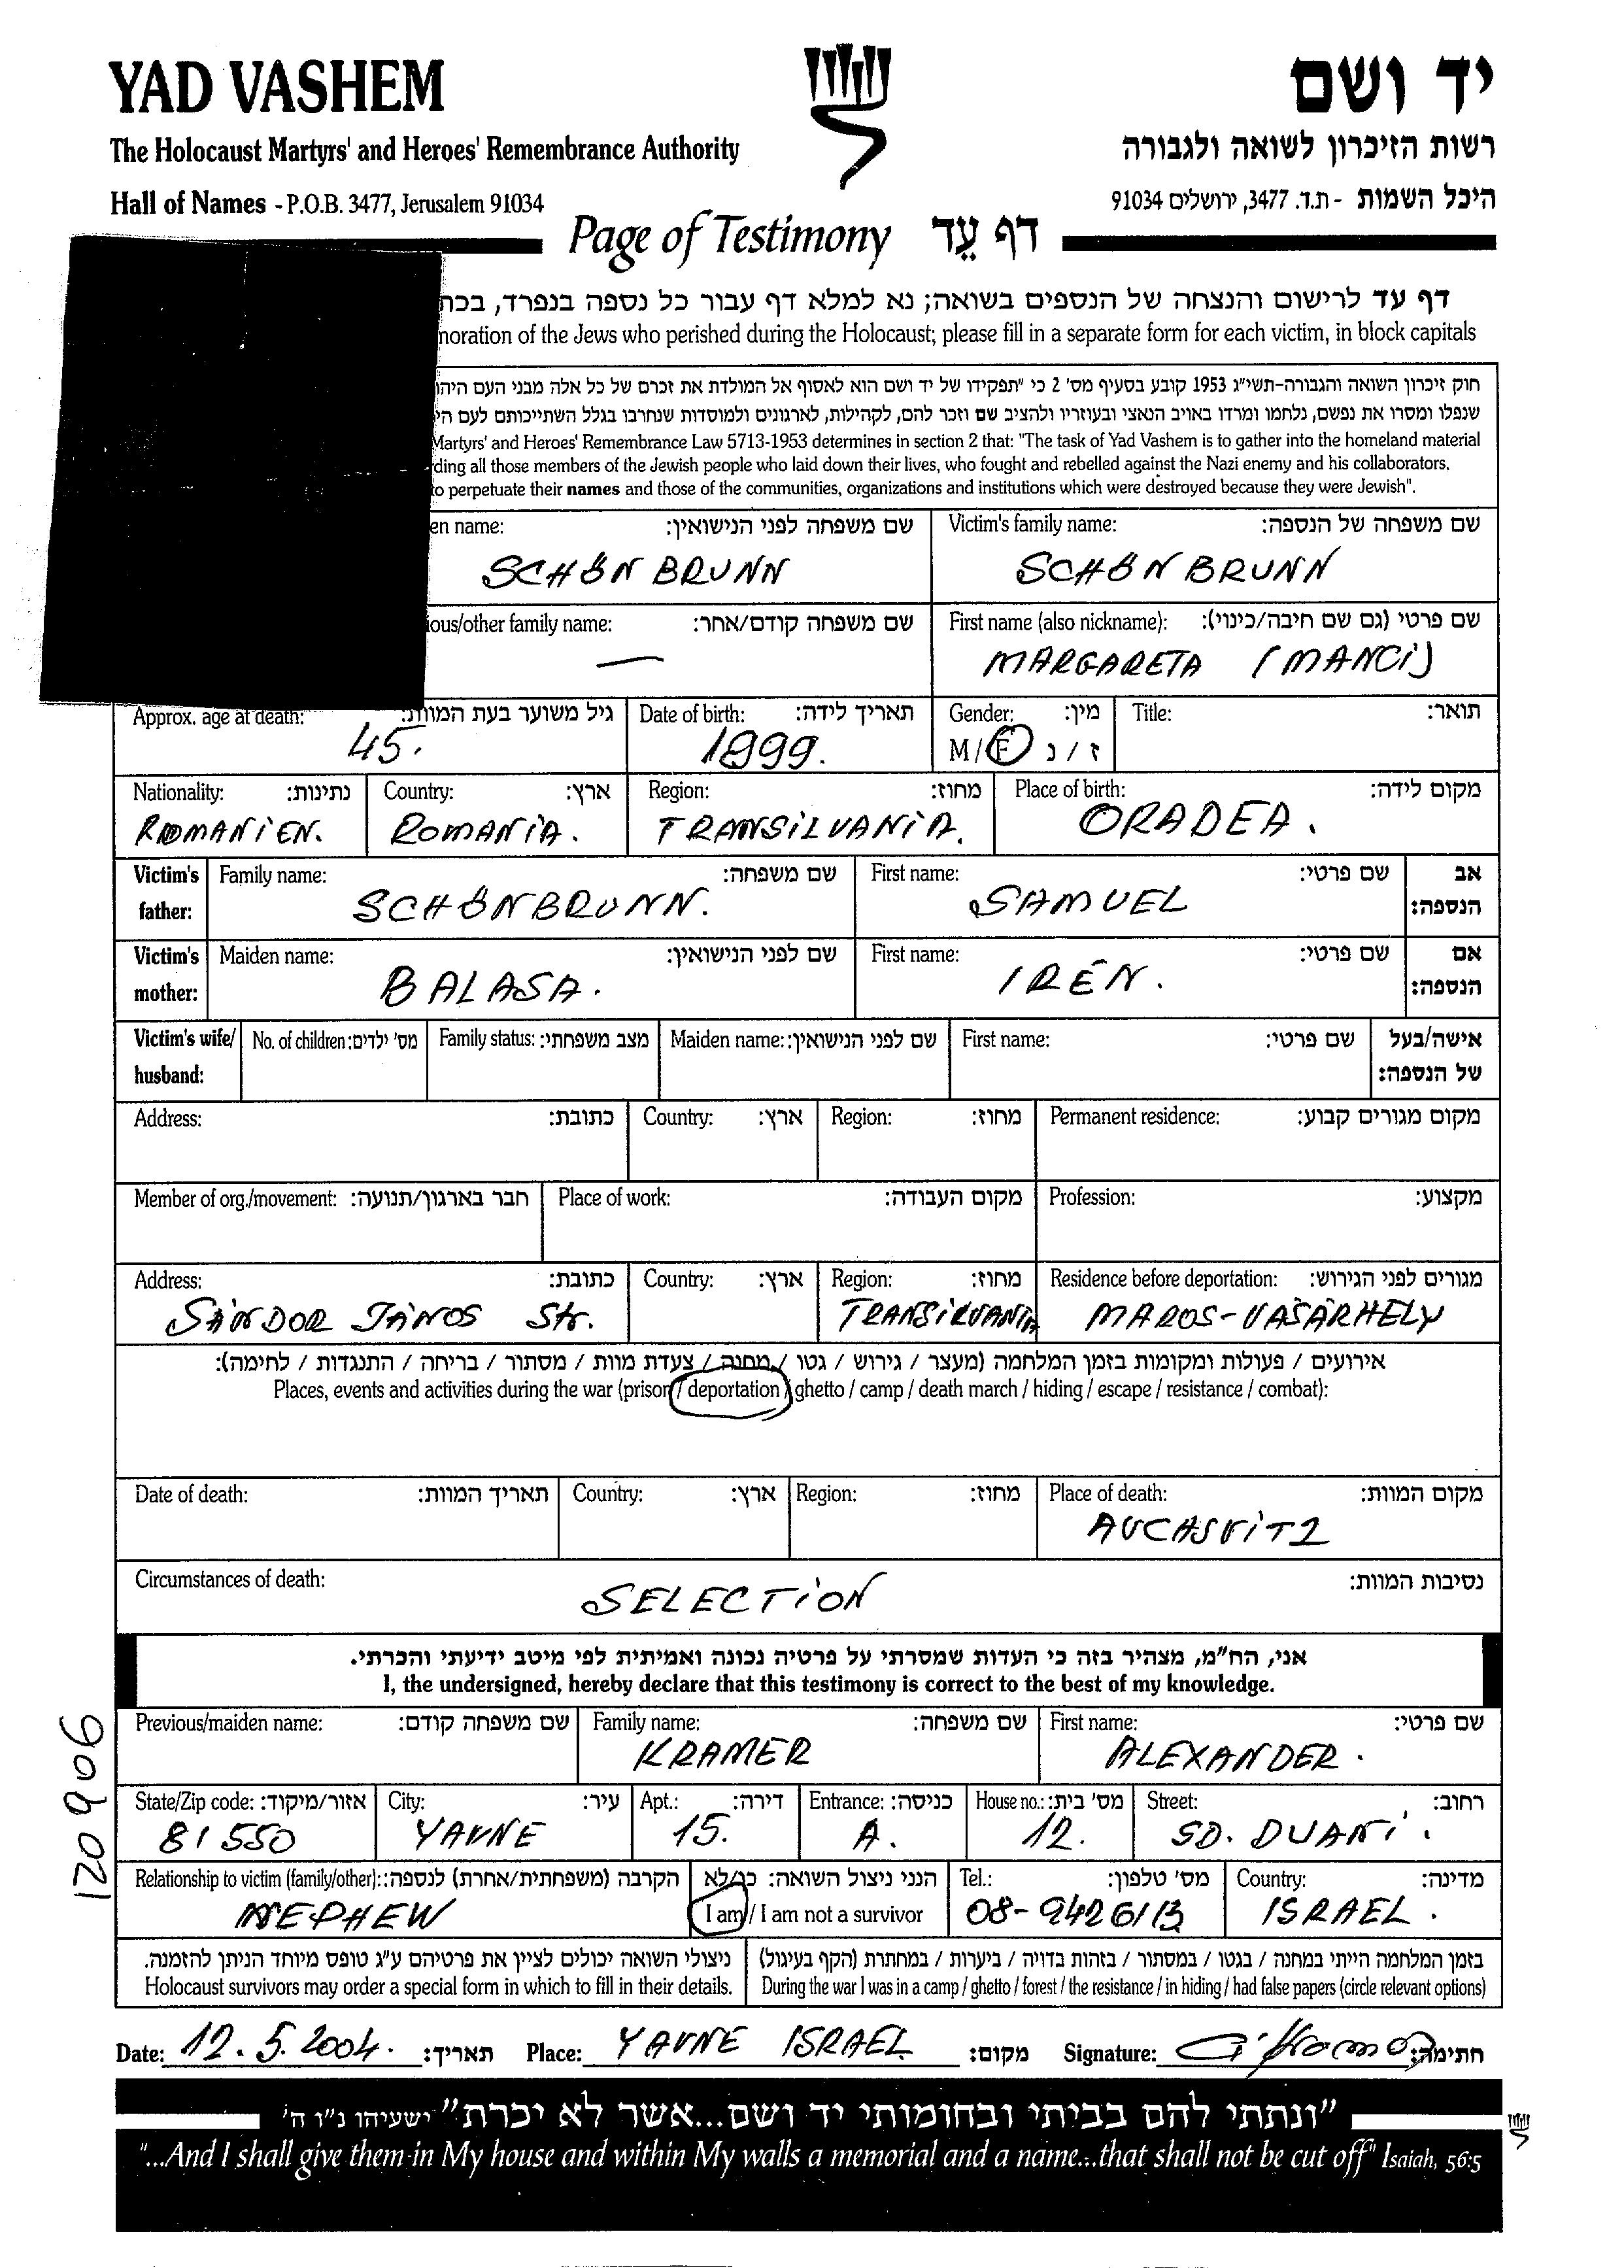 YAD VASHEM
יד ושם
The Holocaust Martyrs' and Heroes' Remembrance Authority
רשות הזיכרון לשואה ולגבורה
Hall of Names - P.O.B. 3477, Jerusalem 91034
היכל השמות - ת.ד. 3477, ירושלים 91034
Page of Testimony דף עֵד
דף עד לרישום והנצחה של הנספים בשואה; נא למלא דף עבור כל נספה בנפרד, בכת
noration of the Jews who perished during the Holocaust; please fill in a separate form for each victim, in block capitals
חוק זיכרון השואה והגבורה-תשי״ג 1953 קובע בסעיף מס' 2 כי ״תפקידו של יד ושם הוא לאסוף אל המולדת את זכרם של כל אלה מבני העם היהו
שנפלו ומסרו את נפשם, נלחמו ומרדו באויב הנאצי ובעוזריו ולהציב שם וזכר להם, לקהילות, לארגונים ולמוסדות שנחרבו בגלל השתייכותם לעם הי
Martyrs' and Heroes' Remembrance Law 5713-1953 determines in section 2 that: "The task of Yad Vashem is to gather into the homeland material
ding all those members of the Jewish people who laid down their lives, who fought and rebelled against the Nazi enemy and his collaborators,
o perpetuate their names and those of the communities, organizations and institutions which were destroyed because they were Jewish".
en name: שם משפחה לפני הנישואין: Victim's family name: שם משפחה של הנספה:
SCHÖNBRUNN SCHÖNBRUNN
ious/other family name: שם משפחה קודם/אחר: First name (also nickname): שם פרטי (גם שם חיבה/כינוי):
— MARGARETA (MANCI)
Approx. age at death: גיל משוער בעת המוות: Date of birth: תאריך לידה: Gender: מין: Title: תואר:
45. 1899. M / F ז / נ
Nationality: נתינות: Country: ארץ: Region: מחוז: Place of birth: מקום לידה:
ROMANIEN. ROMANIA. TRANSILVANIA. ORADEA.
Victim's father: Family name: שם משפחה: First name: שם פרטי: אב הנספה:
SCHÖNBRUNN. SAMUEL
Victim's mother: Maiden name: שם לפני הנישואין: First name: שם פרטי: אם הנספה:
BALASA. IRÉN.
Victim's wife/ husband: No. of children: מס' ילדים: Family status: מצב משפחתי: Maiden name: שם לפני הנישואין: First name: שם פרטי: אישה/בעל של הנספה:
Address: כתובת: Country: ארץ: Region: מחוז: Permanent residence: מקום מגורים קבוע:
Member of org./movement: חבר בארגון/תנועה: Place of work: מקום העבודה: Profession: מקצוע:
Address: כתובת: Country: ארץ: Region: מחוז: Residence before deportation: מגורים לפני הגירוש:
SÁNDOR JÁNOS Str. TRANSILVANIA MAROS-VÁSÁRHELY
אירועים / פעולות ומקומות בזמן המלחמה (מעצר / גירוש / גטו / מחנה / צעדת מוות / מסתור / בריחה / התנגדות / לחימה):
Places, events and activities during the war (prison / deportation / ghetto / camp / death march / hiding / escape / resistance / combat):
Date of death: תאריך המוות: Country: ארץ: Region: מחוז: Place of death: מקום המוות:
AUCASVITZ
Circumstances of death: נסיבות המוות:
SELECTION
אני, הח״מ, מצהיר בזה כי העדות שמסרתי על פרטיה נכונה ואמיתית לפי מיטב ידיעתי והכרתי.
I, the undersigned, hereby declare that this testimony is correct to the best of my knowledge.
Previous/maiden name: שם משפחה קודם: Family name: שם משפחה: First name: שם פרטי:
KRAMER ALEXANDER.
State/Zip code: אזור/מיקוד: City: עיר: Apt.: דירה: Entrance: כניסה: House no.: מס' בית: Street: רחוב:
81550 YAVNE 15. A. 12. SD. DUANI.
Relationship to victim (family/other): הקרבה (משפחתית/אחרת) לנספה: הנני ניצול השואה: כן/לא Tel.: מס' טלפון: Country: מדינה:
NEPHEW I am / I am not a survivor 08-9426113 ISRAEL.
ניצולי השואה יכולים לציין את פרטיהם ע״ג טופס מיוחד הניתן להזמנה. בזמן המלחמה הייתי במחנה / בגטו / במסתור / בזהות בדויה / ביערות / במחתרת (הקף בעיגול)
Holocaust survivors may order a special form in which to fill in their details. During the war I was in a camp / ghetto / forest / the resistance / in hiding / had false papers (circle relevant options)
Date: 12.5.2004. תאריך: Place: YAVNE ISRAEL מקום: Signature: חתימה:
120906
״ונתתי להם בביתי ובחומותי יד ושם...אשר לא יכרת״ ישעיהו נ״ו ה'
"...And I shall give them in My house and within My walls a memorial and a name...that shall not be cut off" Isaiah, 56:5